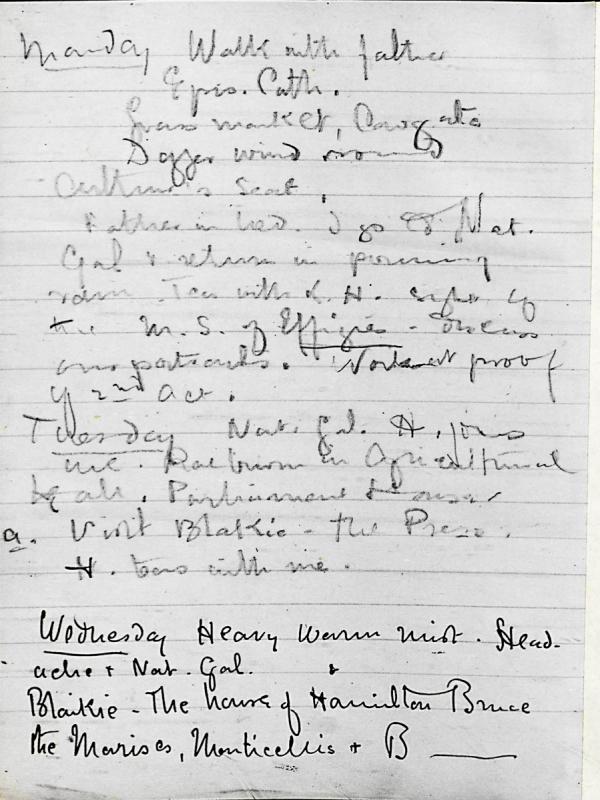 Monday Walk with father
Epis. Cath.
Grass market, Cowgate
Dagger wind round
Arthur's Seat.
Father in bed. I go to Nat.
Gal & return in pouring
rain. Tea with L. H. sight of
the M.S. of Effigies - Discuss
our portraits. Work at proof
of 2nd Act.
Tuesday Nat. Gal. H. joins
me. Raeburn in Agricultural
Hall. Parliament House
a. Visit Blakie - the Press.
H. teas with me.
Wednesday Heavy warm mist. Head-
ache & Nat. Gal. &
Blaikie - The house of Hamilton Bruce
the Marises, Monticellis & B